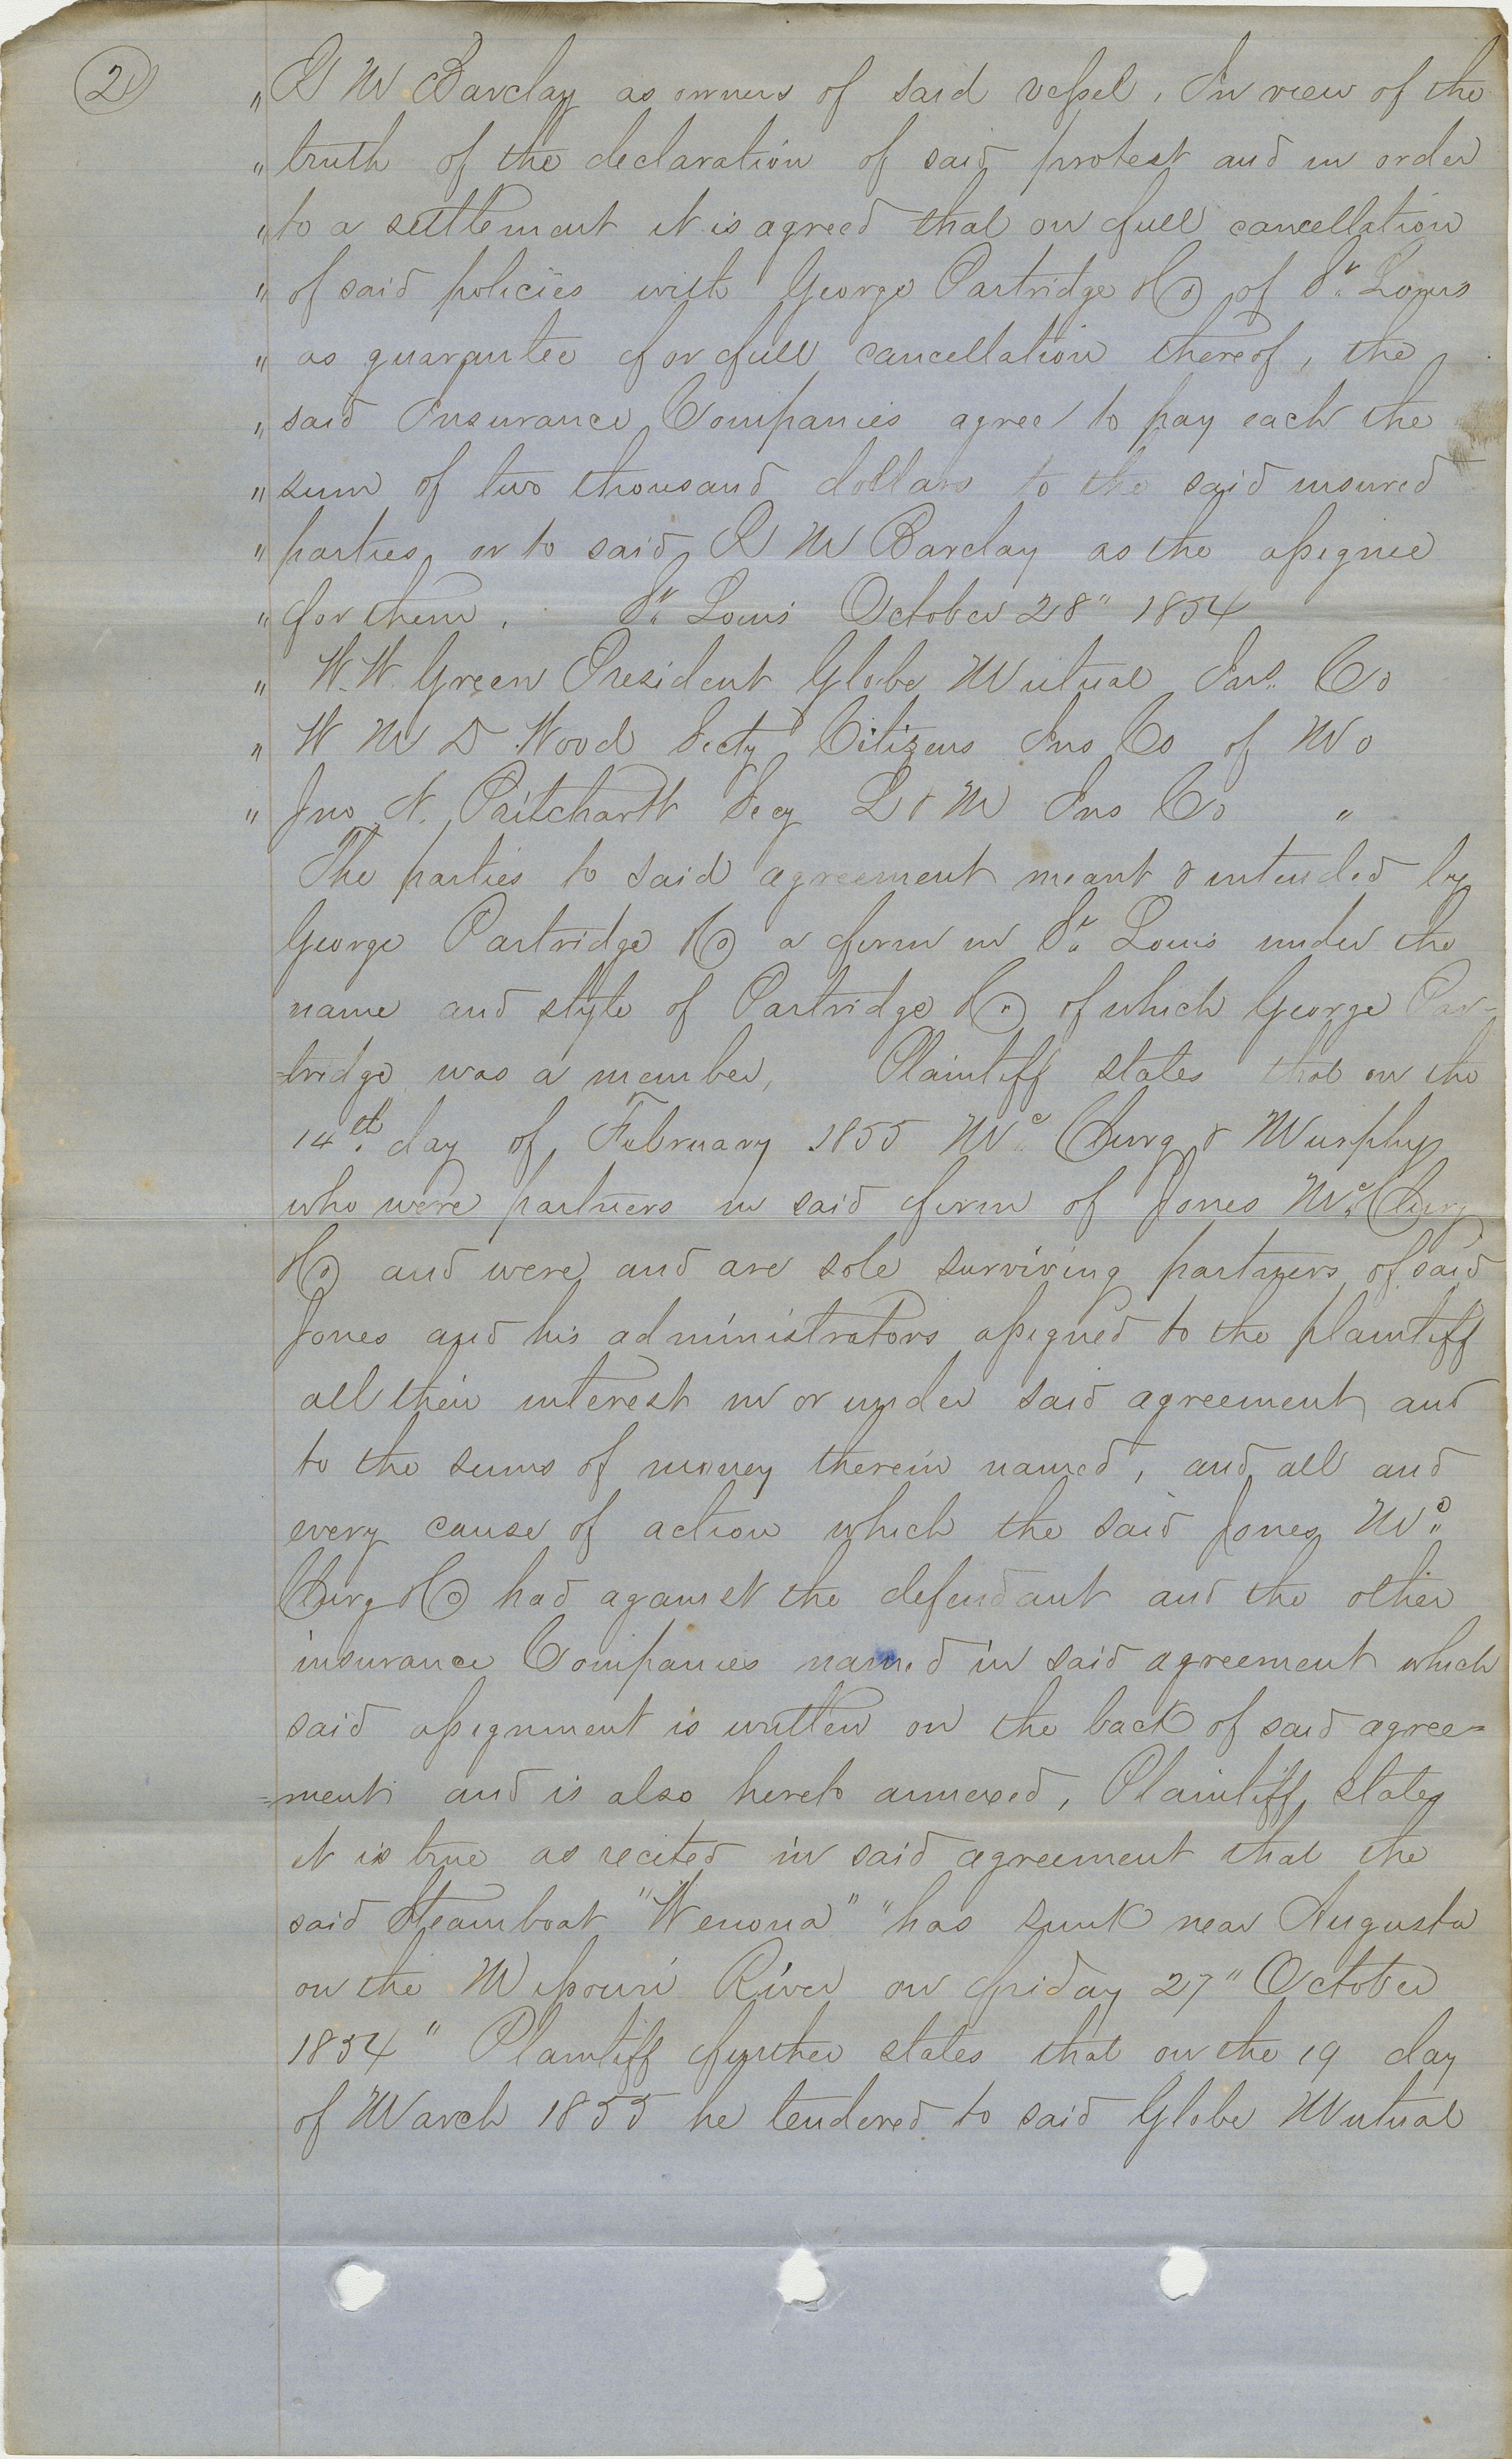 2
" R M Barclay as owners of said vessel, In view of the
" truth of the declaration of said protest and in order
" to a settlement it is agreed that on full cancellation
" of said policies with George Partridge & Co of St. Louis
" as guarantee for full cancellation thereof, the
" said Insurance Companies agree to pay each the
" sum of two thousand dollars to the said insured
" parties or to said R M Barclay as the assignee
" for them. St. Louis October 28" 1854
" W. W. Green President Globe Mutual Ins. Co
" W M D Wood Secty Citizens Ins Co of Mo
" Jno N. Pritchartt Secy L & M Ins Co "
The parties to said agreement meant & intended by
George Partridge & Co a firm in St. Louis under the
name and style of Partridge & Co. of which George Par-
=tridge was a member, Plaintiff states that on the
14th. day of February 1855 Mc. Clurg & Murphy
who were partners in said firm of Jones Mc. Clurg
& Co and were and are sole surviving partners of said
Jones and his administrators assigned to the plaintiff
all their interest in or under said agreement and
to the sums of money therein named, and all and
every cause of action which the said Jones Mc"
Clurg & Co had against the defendant and the other
insurance Companies named in said agreement which
said assignment is written on the back of said agree=
=ment and is also hereto annexed, Plaintiff states
it is true as recited in said agreement that the
said Steamboat "Wenona" "has sunk near Augusta
on the Missouri River on friday 27" October
1854" Plaintiff further states that on the 19 day
of March 1855 he tendered to said Globe Mutual